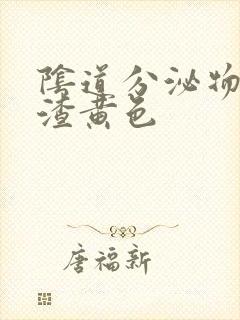 陰道分泌物
渣黄色
唐福新